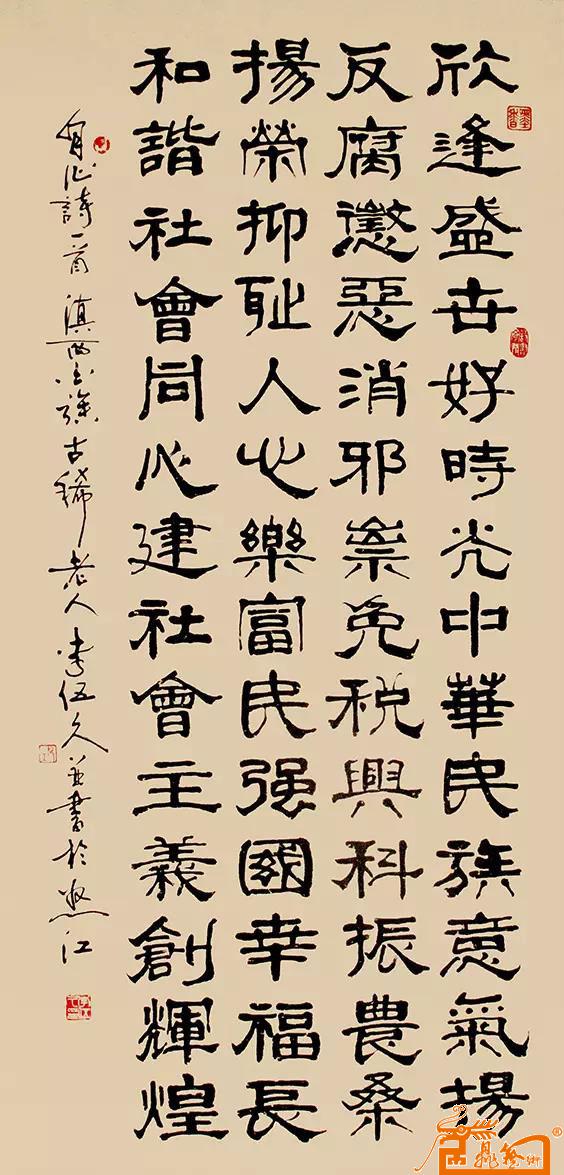 欣逢盛世好時光中華民族意氣揚
反腐懲惡消邪祟免税興科振農桑
揚榮抑耻人心樂富民强國幸福長
和諧社會同心建社會主義創輝煌
自作詩一首 滇西古稀老人李伍久並書於怒江